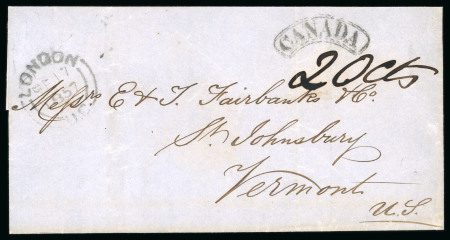 CANADA
LONDON
20 cts
Messrs E & T. Fairbanks & Co.
St. Johnsbury
Vermont
U.S.